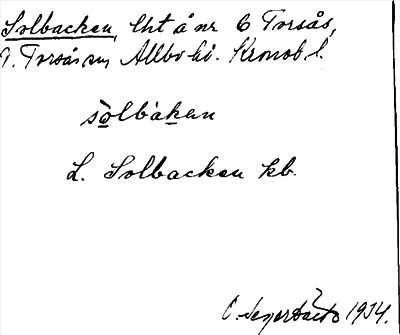 Solbacken, lht å nr 6 Torsås,
T. Torsås sn, Allbo hd. Kronob. l.
sòlbákan
L. Solbacken kb.
C. 1934.